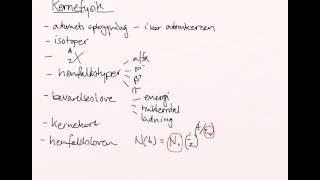 Kernefysik
- atomets opbygning - især atomkernen
- isotoper
- A Z X
- henfaldstyper alfa β⁻ β⁺ γ
- bevarelseslove energi nukleontal ladning
- kernekort
- henfaldsloven N(t) = N₀ (1/2)^(t/T½)